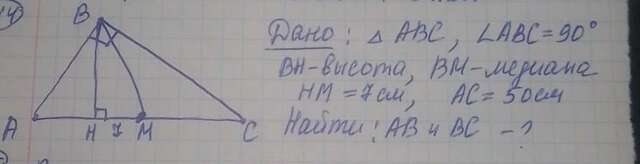 14
B
A
H
7
M
C
Дано: △ ABC, ∠ABC = 90°
BH-высота, BM-медиана
HM = 7см, AC = 50см
Найти: AB и BC - ?